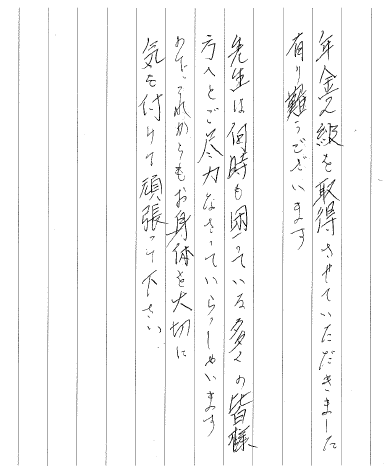 年金2級を取得させていただきました
有り難うございます
先生は何時も困っている多くの皆様
方へとご尽力なさっていらっしゃいます
のでこれからもお身体を大切に
気を付けて頑張って下さい